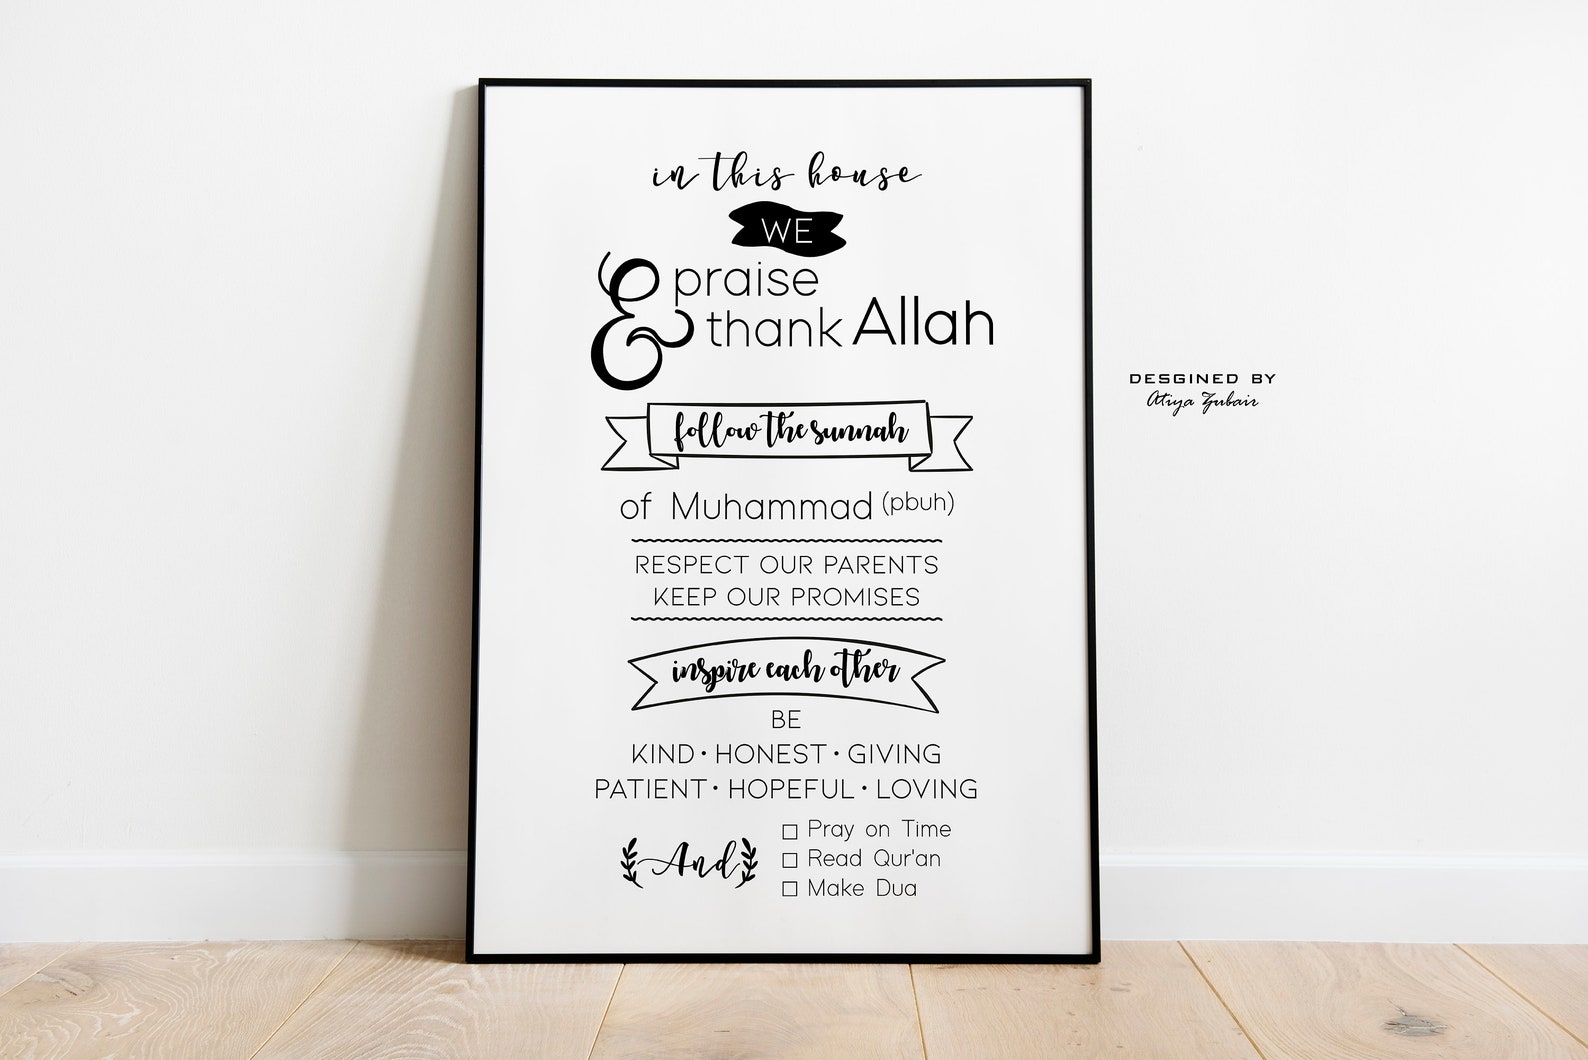 in this house
WE
praise
& thank Allah
follow the sunnah
of Muhammad (pbuh)
RESPECT OUR PARENTS
KEEP OUR PROMISES
inspire each other
BE
KIND • HONEST • GIVING
PATIENT • HOPEFUL • LOVING
And
Pray on Time
Read Qur'an
Make Dua
DESGINED BY
Atiya Zubair